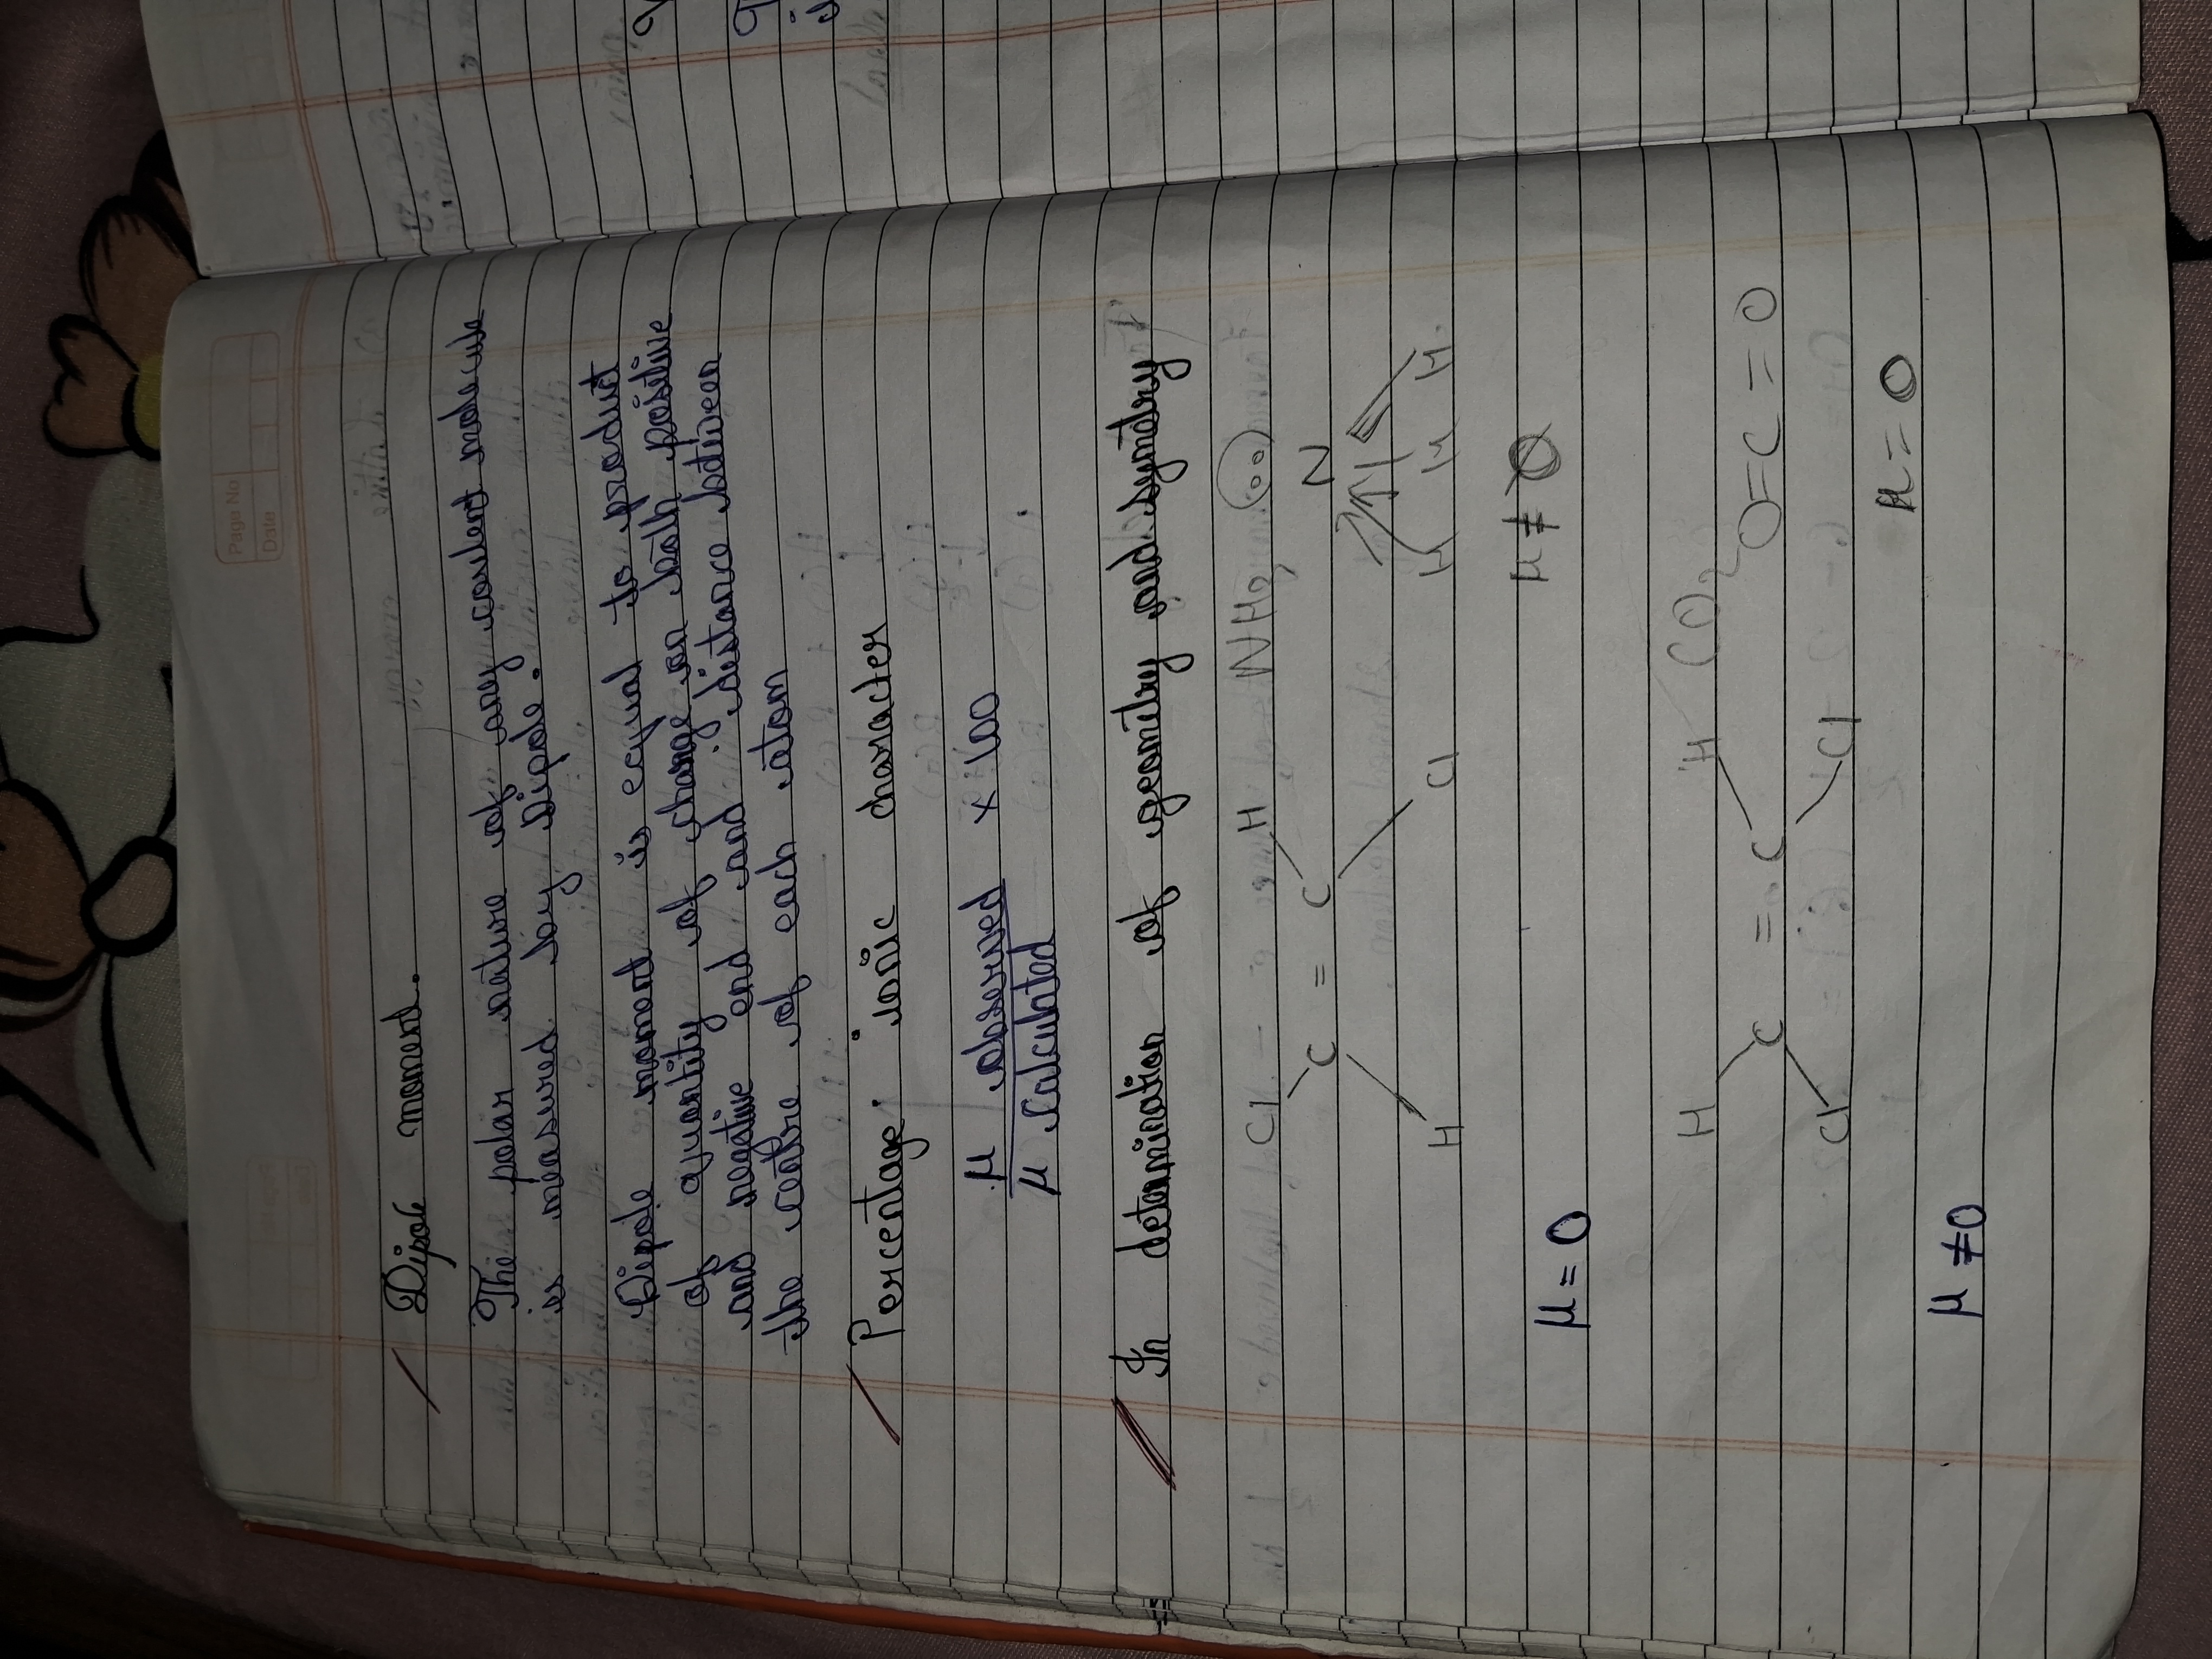 Page No
Date
Dipole moment.
The polar nature of any covalent molecule
is measured by Dipole.
Dipole moment is equal to product
of quantity of charge on both positive
and negative end and distance between
the centre of each atom
Percentage ionic character
μ observed × 100
μ calculated
In determination of geometry and symmetry
Cl H NH3
C = C N
H Cl H H H.
μ = 0 μ ≠ 0
H H CO2
C = C O=C=O
Cl Cl
μ ≠ 0 μ = 0